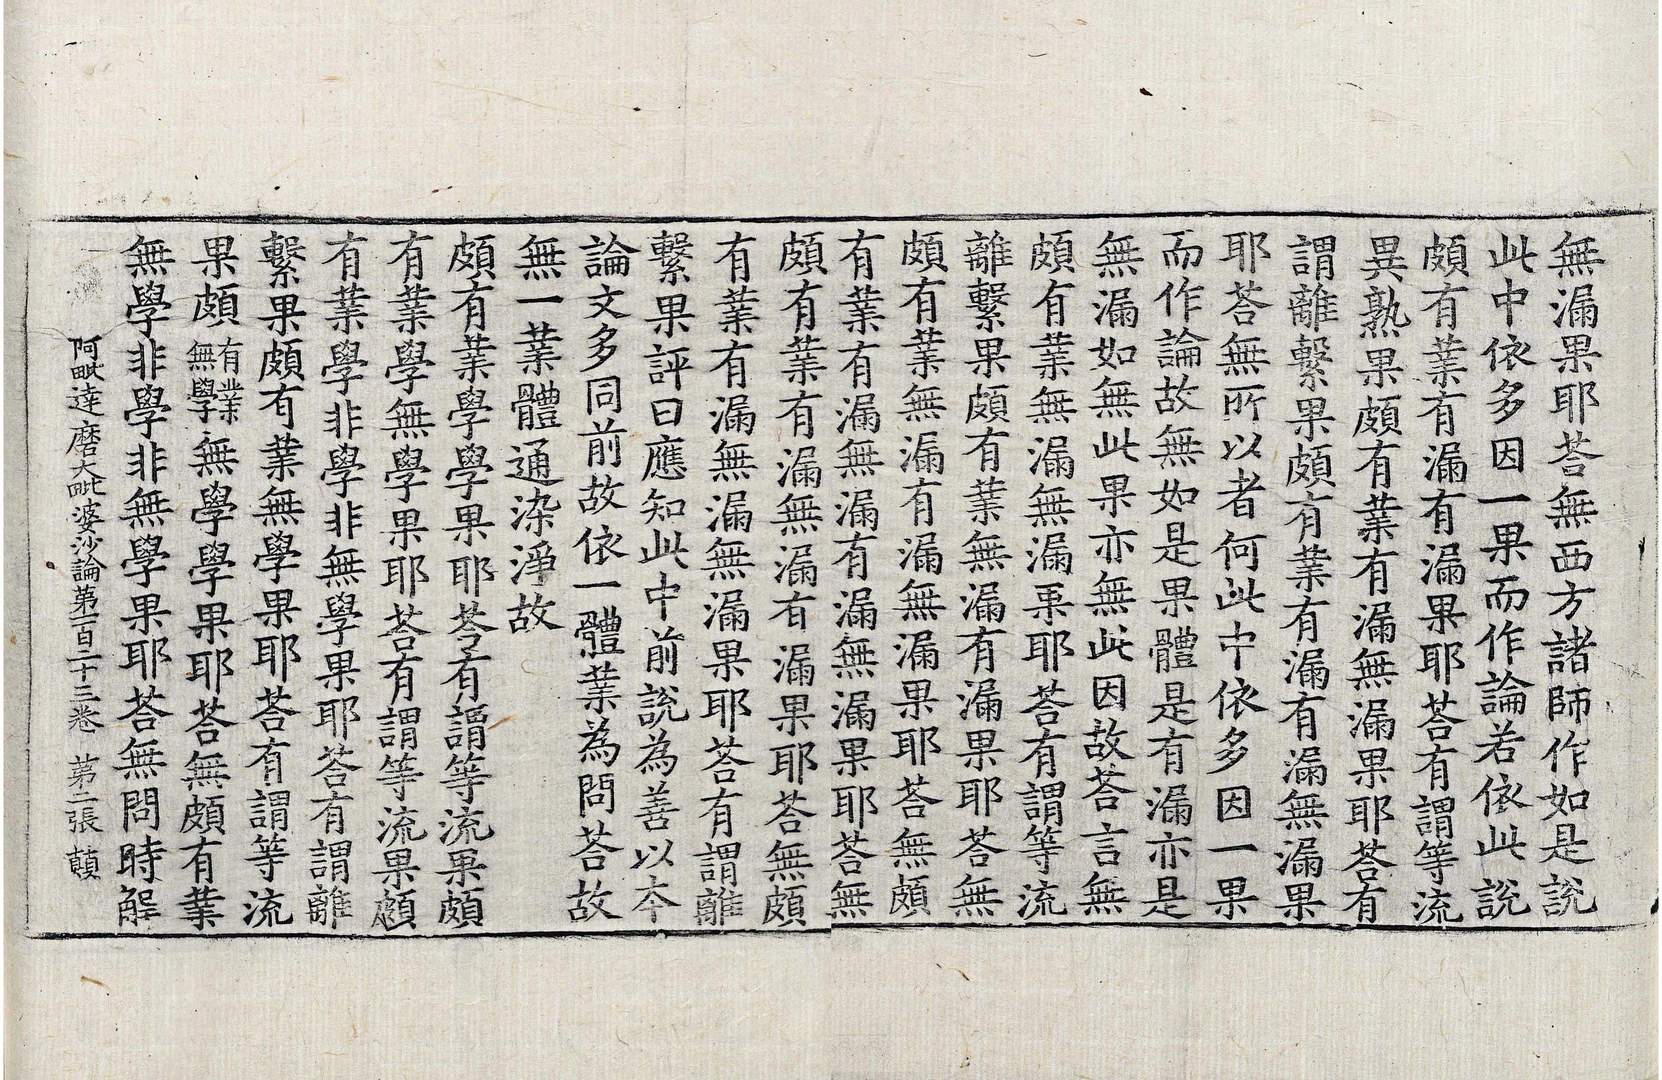 無漏果耶荅無西方諸師作如是說
此中依多因一果而作論若依此說
頗有業有漏有漏果耶荅有謂等流
異熟果頗有業有漏無漏果耶荅有
謂離繫果頗有業有漏有漏無漏果
耶荅無所以者何此中依多因一果
而作論故無如是果體是有漏亦是
無漏如無此果亦無此因故荅言無
頗有業無漏無漏果耶荅有謂等流
離繫果頗有業無漏有漏果耶荅無
頗有業無漏有漏無漏果耶荅無頗
有業有漏無漏有漏無漏果耶荅無
頗有業有漏無漏有漏果耶荅無頗
有業有漏無漏無漏果耶荅有謂離
繫果評曰應知此中前說為善以本
論文多同前故依一體業為問荅故
無一業體通染淨故
頗有業學學果耶荅有謂等流果頗
有業學無學果耶荅有謂等流果頗
有業學非學非無學果耶荅有謂離
繫果頗有業無學學果耶荅有謂等流
果頗有業無學無學學果耶荅無頗有業
無學非學非無學果耶荅無問時解
阿毗達磨大毗婆沙論第一百二十三卷 第二張 顛